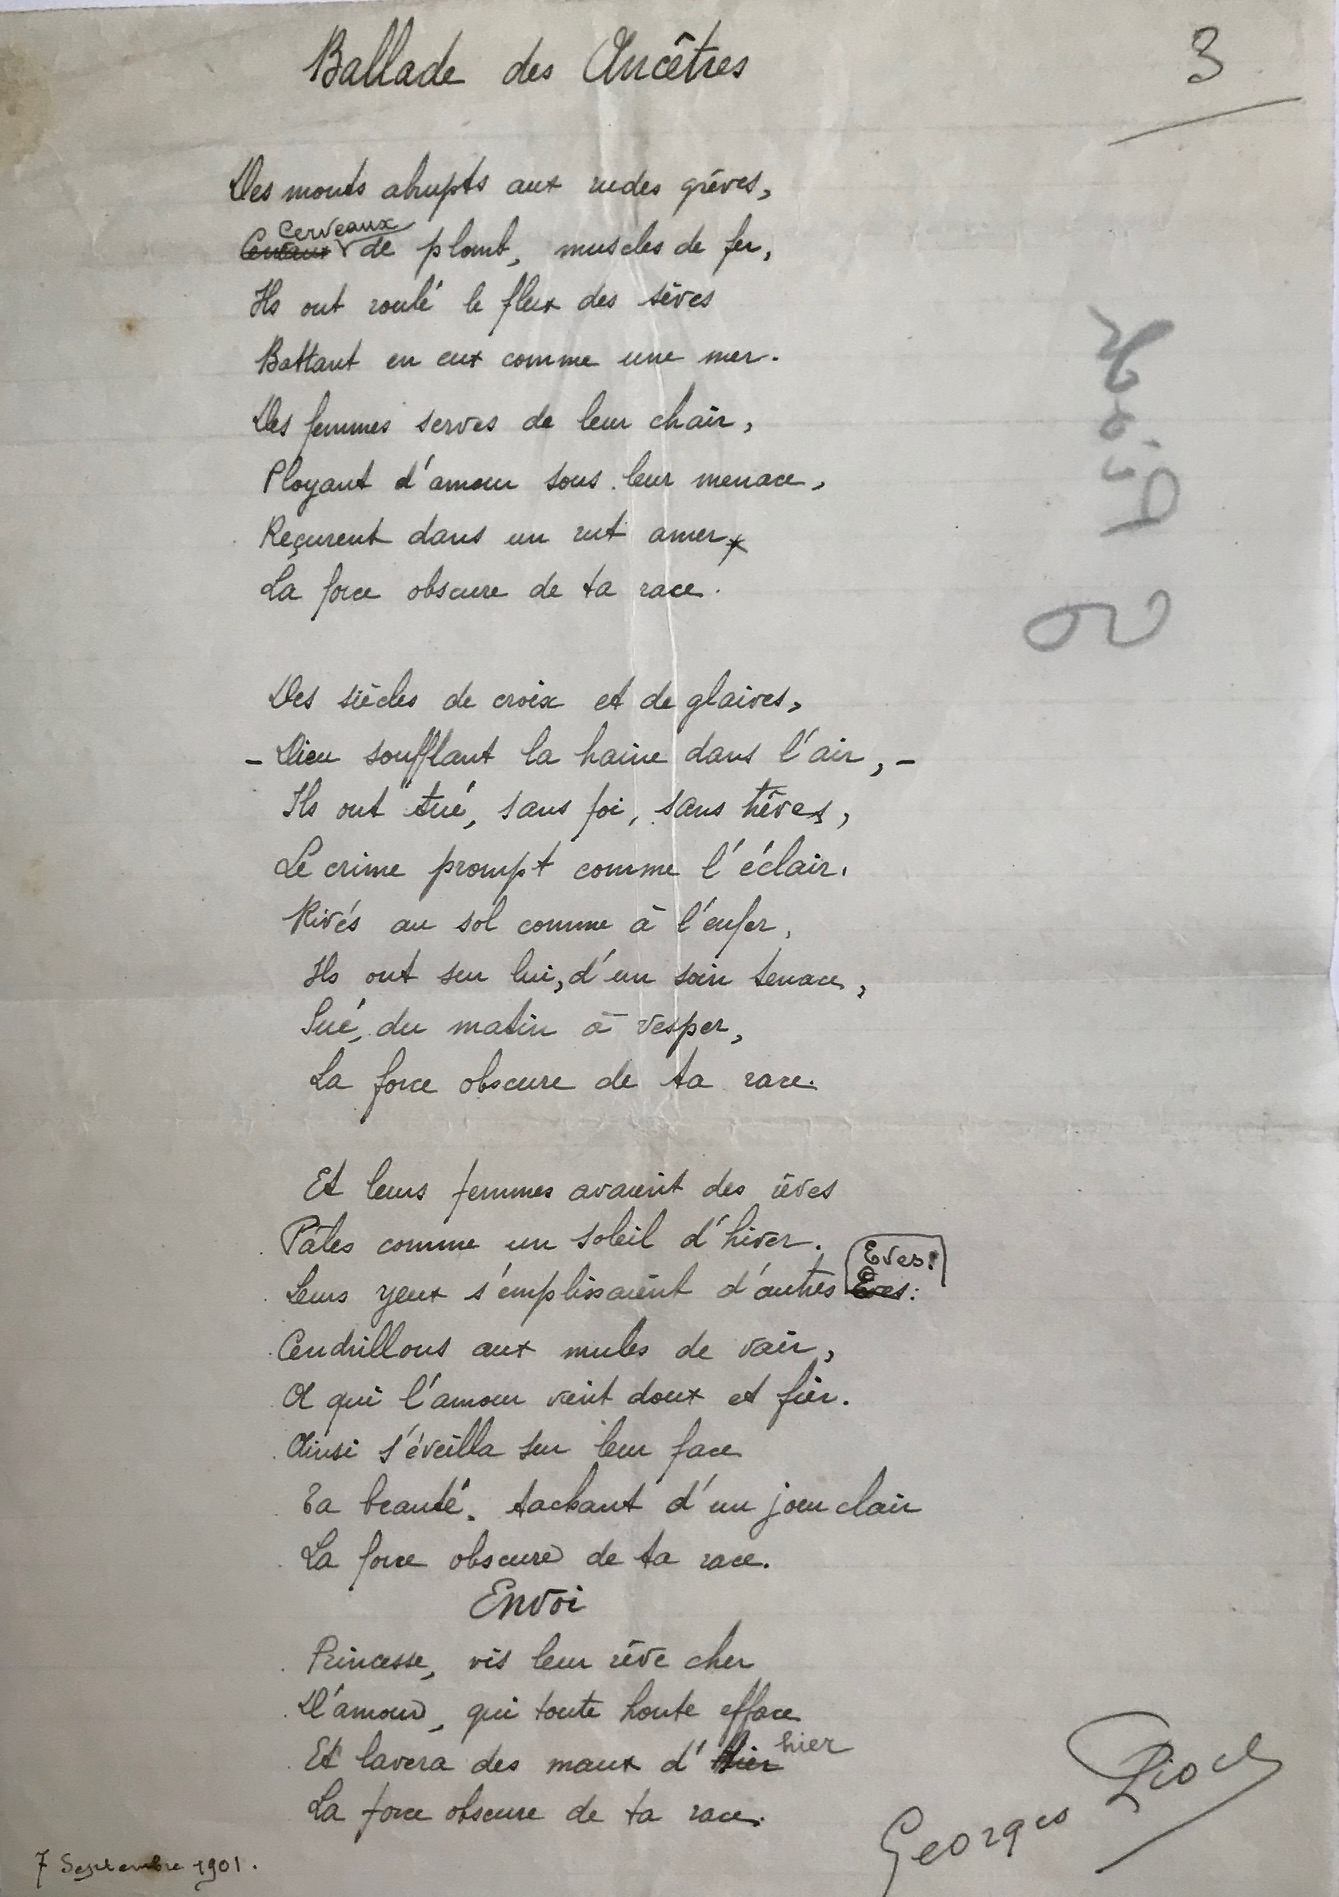 Ballade des Ancêtres
3
Des monts abrupts aux rudes grèves,
Cerveaux
Cerveaux de plomb, muscles de fer,
Ils ont roulé le flux des sèves
Battant en eux comme une mer.
Des femmes serves de leur chair,
Ployant d'amour sous leur menace,
Reçurent dans un rut amer
La force obscure de ta race.
Des siècles de croix et de glaives,
– Dieu soufflant la haine dans l'air, –
Ils ont tué, sans foi, sans trêves,
Le crime prompt comme l'éclair.
Rivés au sol comme à l'enfer,
Ils ont sur lui, d'un soin tenace,
Sué, du matin à vesper,
La force obscure de ta race.
Et leurs femmes avaient des rêves
Pâles comme un soleil d'hiver.
Eves:
Leurs yeux s'emplissaient d'autres Eves:
Cendrillons aux mules de vair,
A qui l'amour vient doux et fier.
Ainsi s'éveilla sur leur face
Ta beauté, tachant d'un jour clair
La force obscure de ta race.
Envoi
Princesse, vis leur rêve cher
D'amour, qui toute honte efface
Et lavera des maux d'hier hier
La force obscure de ta race.
Georges Pioch
7 Septembre 1901.